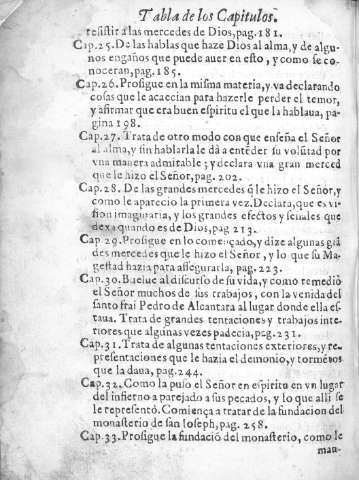 Tabla de los Capitulos.
resistir a las mercedes de Dios, pag. 181.
Cap. 25. De las hablas que haze Dios al alma, y de algu-
nos engaños que puede auer en esto, y como se co-
noceran, pag. 185.
Cap. 26. Prosigue en la misma materia, y va declarando
cosas que le acaecian para hazerle perder el temor,
y afirmar que era buen espiritu el que la hablaua, pa-
gina 198.
Cap. 27. Trata de otro modo con que enseña el Señor
al alma, y sin hablarla le dà a entēder su volūtad por
vna manera admirable; y declara vna gran merced
que le hizo el Señor, pag. 202.
Cap. 28. De las grandes mercedes q̃ le hizo el Señor, y
como le aparecio la primera vez. Declara, que es vi-
sion imaginaria, y los grandes efectos y señales que
dexa quando es de Dios, pag 213.
Cap. 29. Prosigue en lo començado, y dize algunas grā
des mercedes que le hizo el Señor, y lo que su Ma-
gestad hazia para assegurarla, pag. 223.
Cap. 30. Buelue al discurso de su vida, y como remediò
el Señor muchos de sus trabajos, con la venida del
santo frai Pedro de Alcantara al lugar donde ella es-
taua. Trata de grandes tentaciones y trabajos inte-
riores que algunas vezes padecia, pag. 231.
Cap. 31. Trata de algunas tentaciones exteriores, y re-
presentaciones que le hazia el demonio, y tormētos
que la daua, pag. 244.
Cap. 32. Como la puso el Señor en espiritu en vn lugar
del infierno a parejado a sus pecados, y lo que alli se
le representò. Comiença a tratar de la fundacion del
monasterio de san Ioseph, pag. 258.
Cap. 33. Prosigue la fundaciō del monasterio, como le
man-